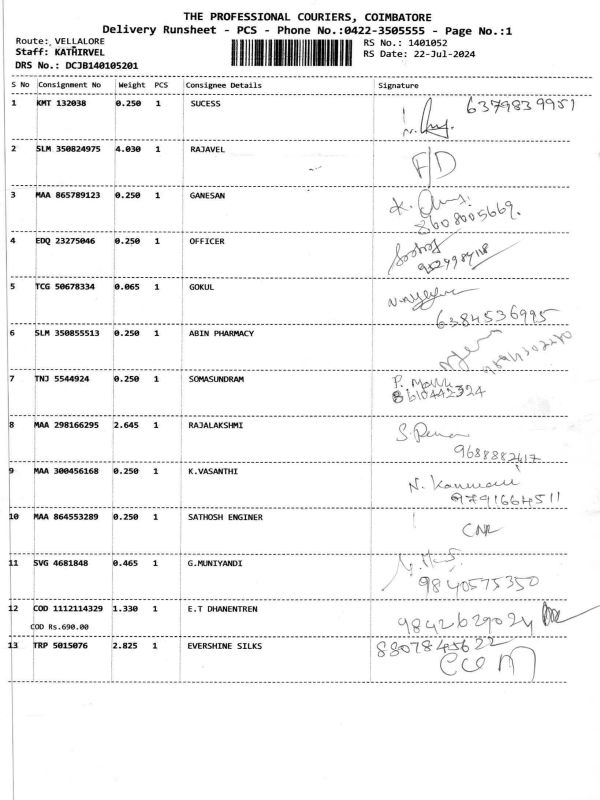 THE PROFESSIONAL COURIERS, COIMBATORE
Delivery Runsheet - PCS - Phone No.:0422-3505555 - Page No.:1
Route: VELLALORE
Staff: KATHIRVEL
DRS No.: DCJB140105201
RS No.: 1401052
RS Date: 22-Jul-2024
S No Consignment No Weight PCS Consignee Details Signature
1 KMT 132038 0.250 1 SUCESS 6379839951
2 SLM 350824975 4.030 1 RAJAVEL F/D
3 MAA 865789123 0.250 1 GANESAN
8608005669.
4 EDQ 23275046 0.250 1 OFFICER
5 TCG 50678334 0.065 1 GOKUL
6384536995
6 SLM 350855513 0.250 1 ABIN PHARMACY
7 TNJ 5544924 0.250 1 SOMASUNDRAM
8610442324
8 MAA 298166295 2.645 1 RAJALAKSHMI
9688882617
9 MAA 300456168 0.250 1 K.VASANTHI
9791664511
10 MAA 864553289 0.250 1 SATHOSH ENGINER
11 SVG 4681848 0.465 1 G.MUNIYANDI
9840575350
12 COD 1112114329 1.330 1 E.T DHANENTREN
COD Rs.690.00 9842629024
13 TRP 5015076 2.825 1 EVERSHINE SILKS 8807845622